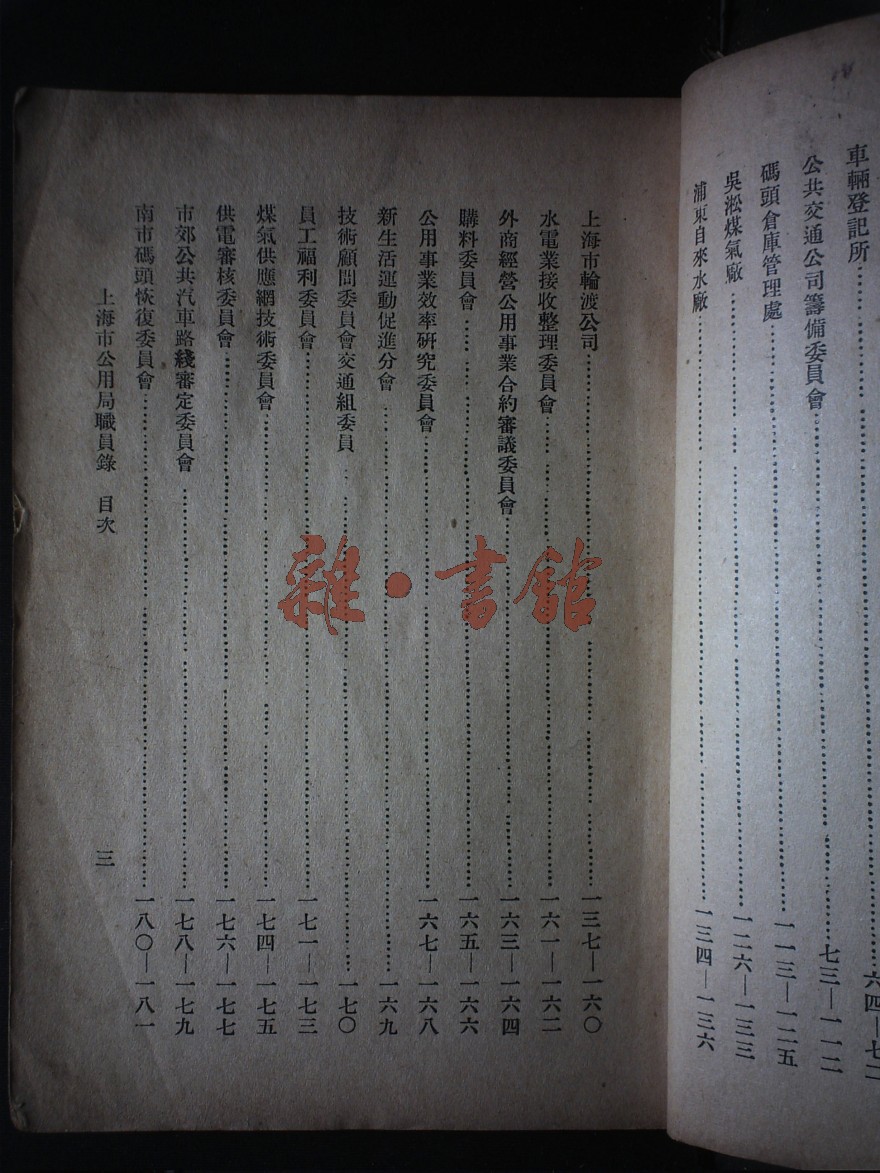 車輛登記所……六四—七二
公共交通公司籌備委員會……七三—一一二
碼頭倉庫管理處……一一三—一二五
吳淞煤氣廠……一二六—一三三
浦東自來水廠……一三四—一三六
上海市輪渡公司……一三七—一六〇
水電業接收整理委員會……一六一—一六二
外商經營公用事業合約審議委員會……一六三—一六四
購料委員會……一六五—一六六
公用事業效率研究委員會……一六七—一六八
新生活運動促進分會……一六九
技術顧問委員會交通組委員……一七〇
員工福利委員會……一七一—一七三
煤氣供應網技術委員會……一七四—一七五
供電審核委員會……一七六—一七七
市郊公共汽車路綫審定委員會……一七八—一七九
南市碼頭恢復委員會……一八〇—一八一
上海市公用局職員錄 目次 三
雜·書館